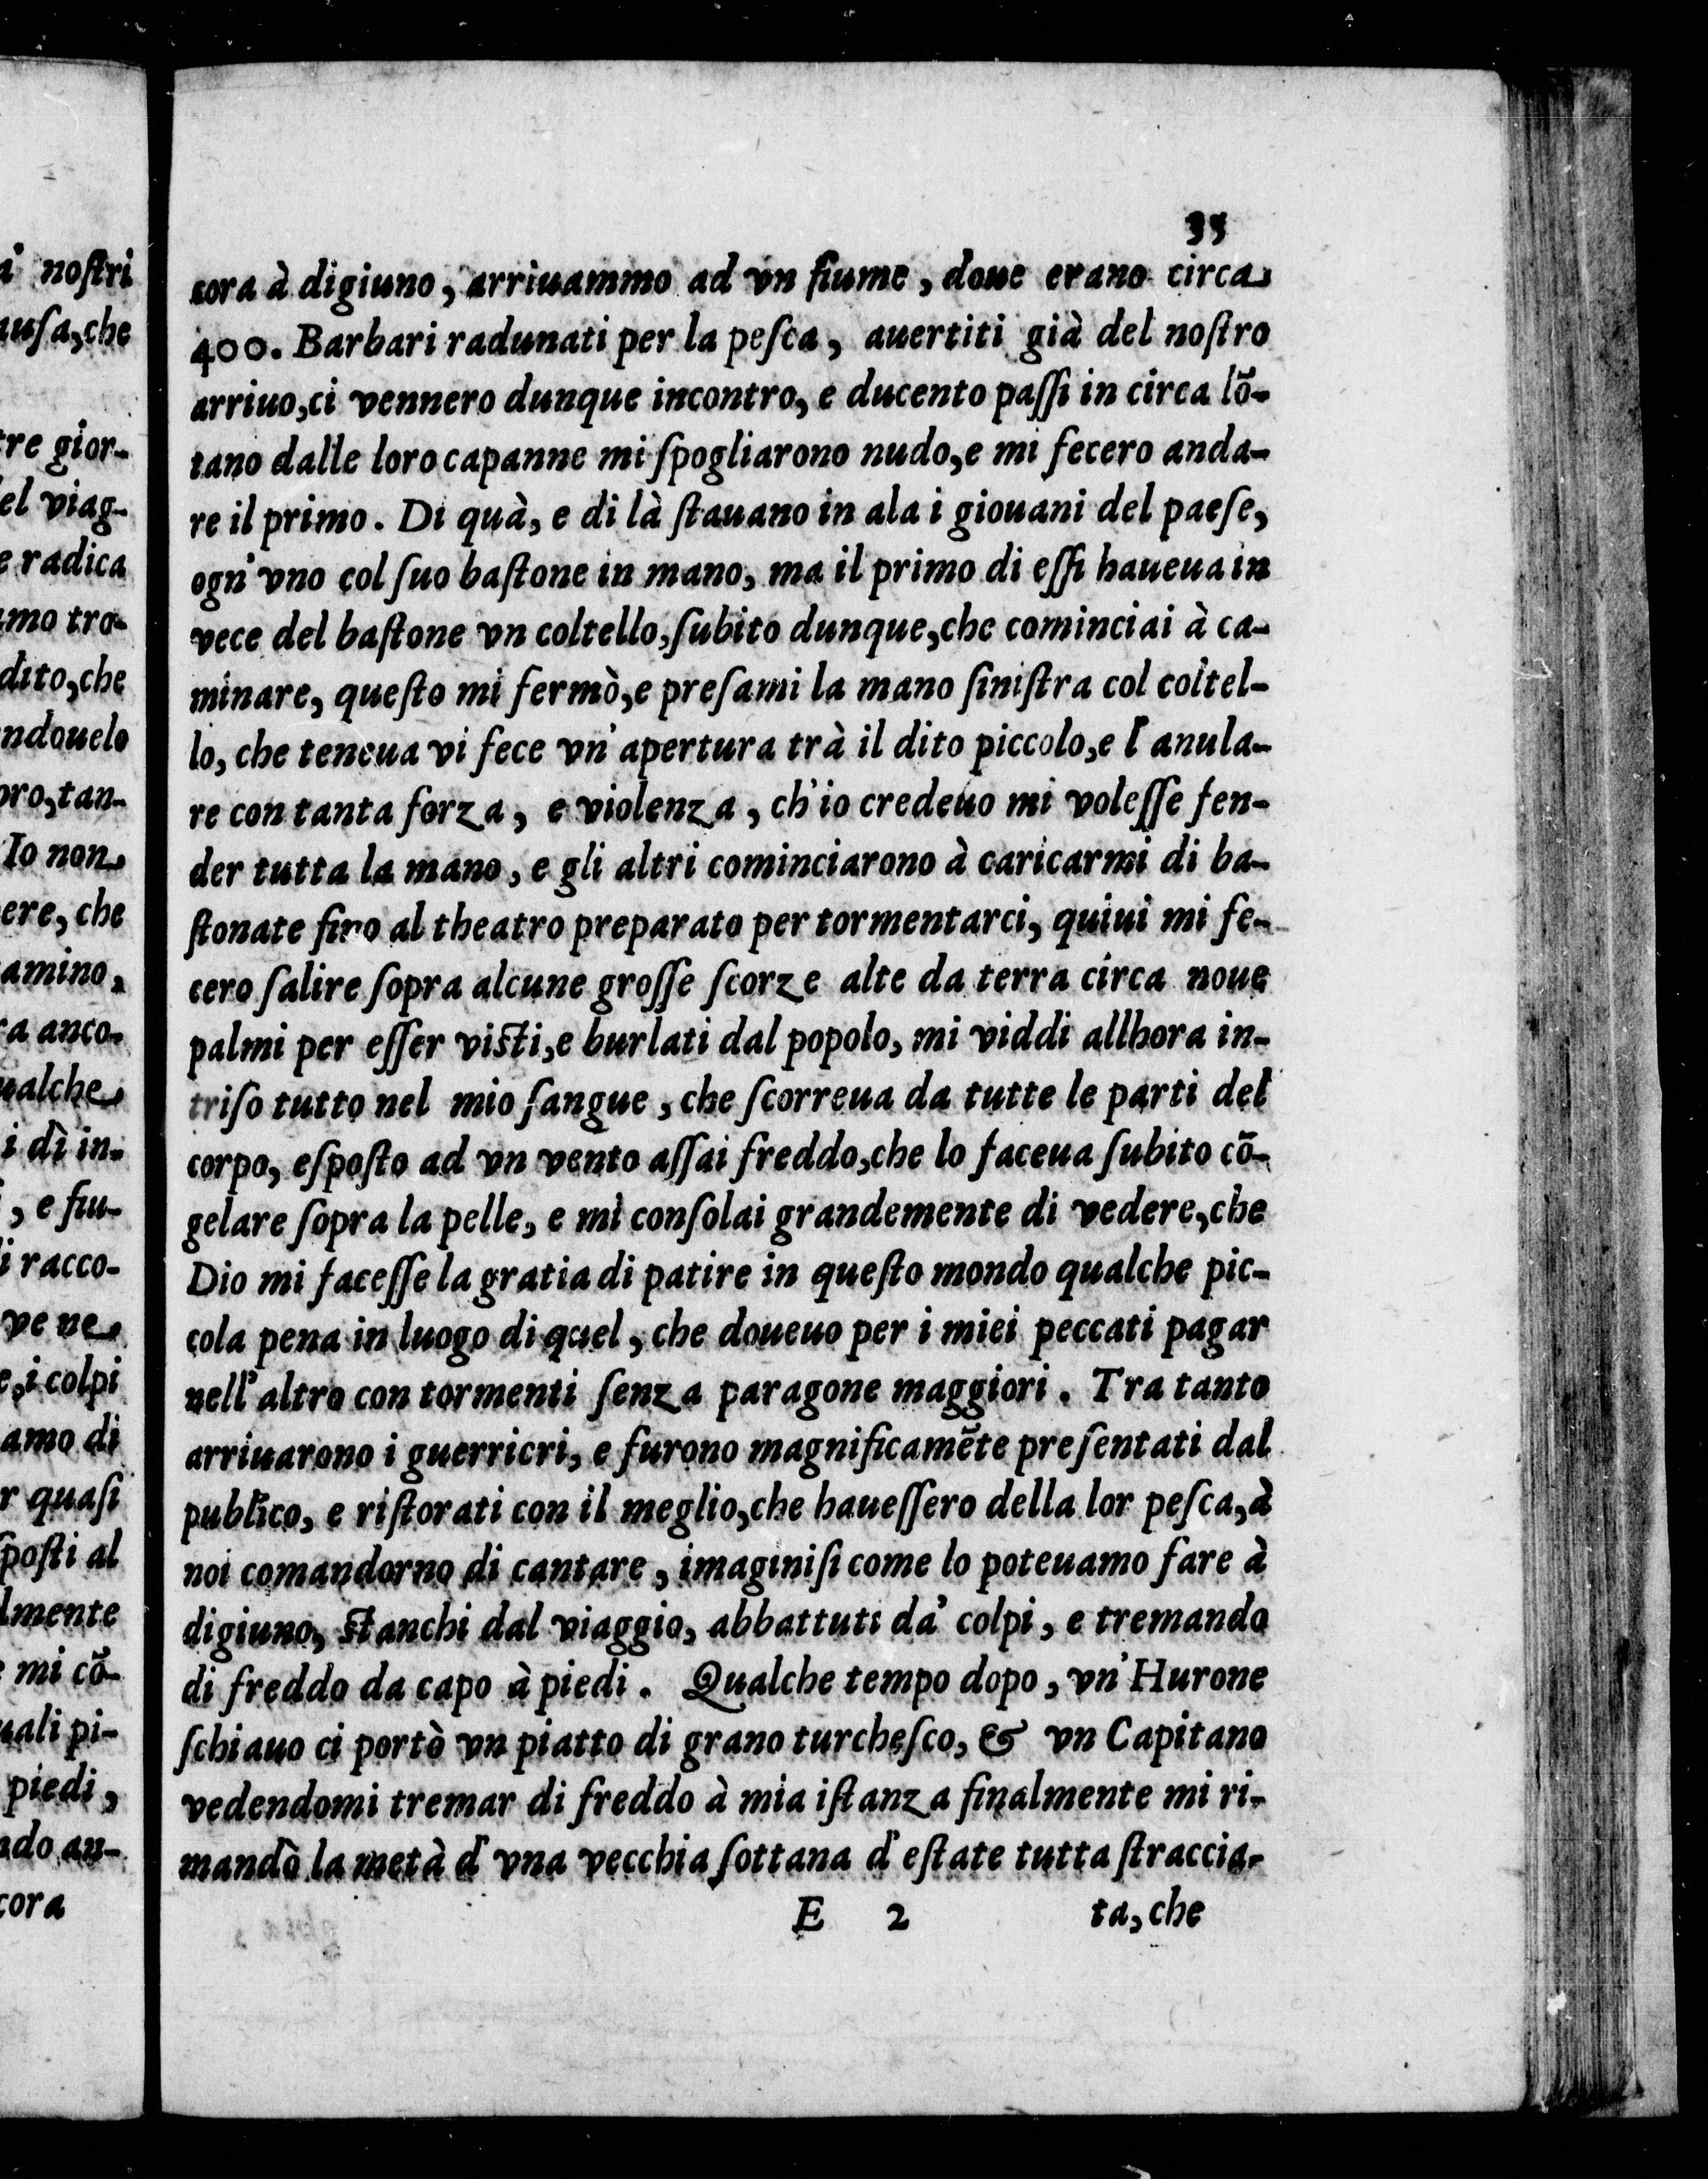 35
cora à digiuno, arriuammo ad vn fiume, doue erano circa
400. Barbari radunati per la peſca, auertiti già del noſtro
arriuo,ci vennero dunque incontro, e ducento paſſi in circa lõ-
tano dalle loro capanne mi ſpogliarono nudo,e mi fecero anda-
re il primo. Di quà, e di là ſtauano in ala i giouani del paeſe,
ogn'vno col ſuo baſtone in mano, ma il primo di eſſi haueua in
vece del baſtone vn coltello,ſubito dunque,che cominciai à ca-
minare, queſto mi fermò,e preſami la mano ſiniſtra col coltel-
lo, che teneua vi fece vn'apertura trà il dito piccolo,e l'anula-
re con tanta forza, e violenza, ch'io credeuo mi voleſſe fen-
der tutta la mano, e gli altri cominciarono à caricarmi di ba-
ſtonate fino al theatro preparato per tormentarci, quiui mi fe-
cero ſalire ſopra alcune groſſe ſcorze alte da terra circa noue
palmi per eſſer viſti,e burlati dal popolo, mi viddi allhora in-
triſo tutto nel mio ſangue, che ſcorreua da tutte le parti del
corpo, eſpoſto ad vn vento aſſai freddo,che lo faceua ſubito cõ-
gelare ſopra la pelle, e mi conſolai grandemente di vedere,che
Dio mi faceſſe la gratia di patire in queſto mondo qualche pic-
cola pena in luogo di quel, che doueuo per i miei peccati pagar
nell'altro con tormenti ſenza paragone maggiori. Tra tanto
arriuarono i guerrieri, e furono magnificamẽte preſentati dal
publico, e riſtorati con il meglio,che haueſſero della lor peſca,à
noi comandorno di cantare, imaginiſi come lo poteuamo fare à
digiuno, ſtanchi dal viaggio, abbattuti da' colpi, e tremando
di freddo da capo à piedi. Qualche tempo dopo, vn'Hurone
ſchiauo ci portò vn piatto di grano turcheſco, & vn Capitano
vedendomi tremar di freddo à mia iſtanza finalmente mi ri-
mandò la metà d'vna vecchia ſottana d'eſtate tutta ſtraccia-
E 2 ta, che
a' noſtri
auſa,che
tre gior-
el viag-
e radica
mo tro-
dito,che
ndouelo
oro,tan-
Io non
ere, che
amino,
ra anco-
ualche
i dì in-
, e fiu-
i racco-
ve ne
e,i colpi
amo di
r quaſi
ſpoſti al
lmente
e mi cõ-
uali pi-
piedi,
ndo an-
cora